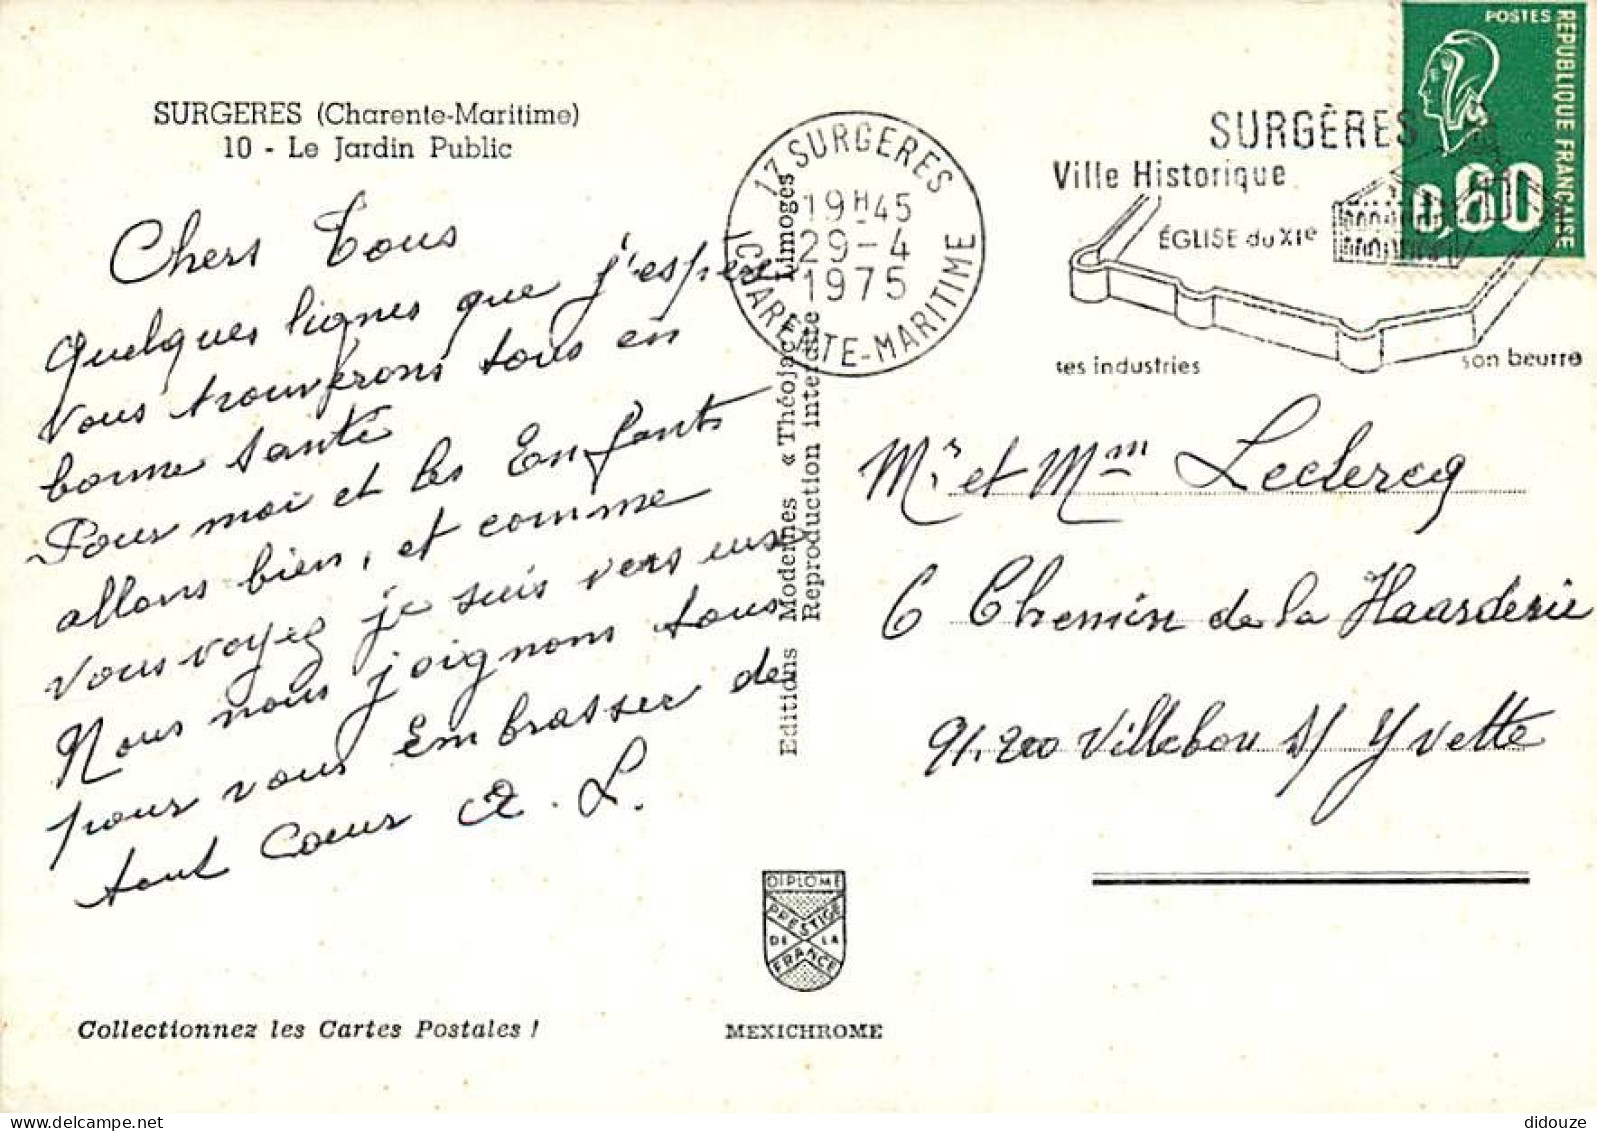 SURGERES (Charente-Maritime)
10 - Le Jardin Public
Chers Tous
Quelques lignes que j'espère
vous trouverons tous en
bonne santé
Pour moi et les Enfants
allons bien, et comme
vous voyez je suis vers eux
Nous nous joignons tous
pour vous Embrasser de
tout Cœur
Collectionnez les Cartes Postales !
Editions Modernes « Théojac Limoges
Reproduction interdite
DIPLOME
PRESTIGE
DE LA
FRANCE
MEXICHROME
17 SURGERES
19H45
29-4
1975
CHARENTE-MARITIME
SURGÈRES
Ville Historique
ÉGLISE du XIe
ses industries
son beurre
POSTES
REPUBLIQUE FRANÇAISE
0,60
Mr et Mm Leclercq
6 Chemin de la Haarderie
91.200 Villebon s/ Yvette
didouze